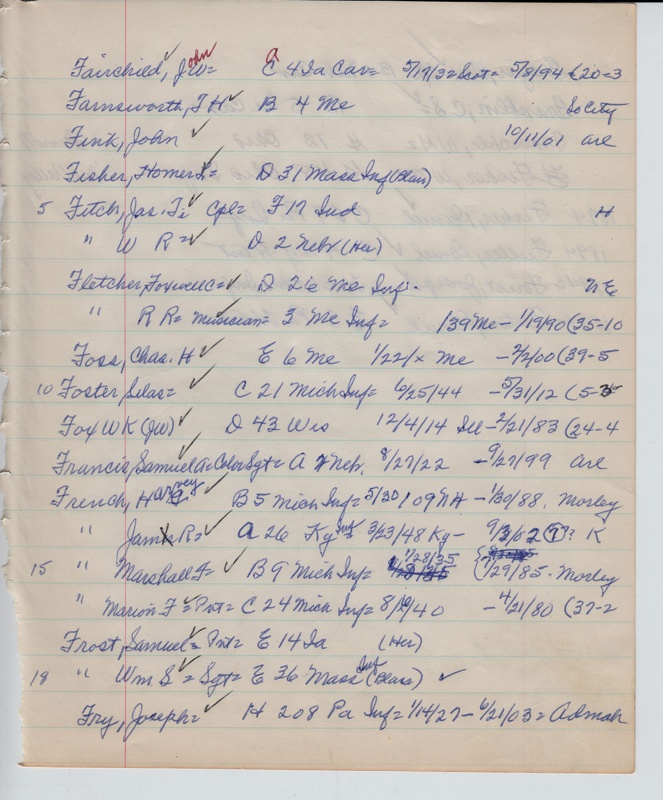 Fairchild, John W= E 4 Ia Cav= 5/19/32=Scot= 5/8/94 (20=3
Farnsworth, T H B 4 Me So City
Fink, John 10/11/01 are
Fisher, Homer D 31 Mass Inf (Blair)
5 Fitch, Jas. Cpl= F 17 Ind H
" W R= D 2 Nebr (Her)
Fletcher, Foxwell C= D 26 Me Inf. N E
" R R= musician= 3 Me Inf= /39 Me - 1/19/90 (35-10
Foss, Chas. H E 6 Me 1/22/x Me - 7/2/00 (39-5
10 Foster, Silas= C 21 Mich Inf= 6/25/44 - 5/31/12 (5-3
Fox W K (JW) D 43 Wis 12/4/14 Ill - 2/21/83 (24-4
Francis, Samuel A= Color Sgt= A 2 Nebr. 8/27/22 - 9/27/99 are
French, Harvey B 5 Mich Inf= 5/30/09 NH - 1/30/88. Morley
" James R= A 26 Ky Inf= 3/23/48 Ky - 9/3/62 (7)? K
15 " Marshall F= B 9 Mich Inf= 1/28/35 1/29/85. Morley
" Marion F= Pvt= C 24 Mich Inf= 8/19/40 - 4/21/80 (37-2
Frost, Samuel= Pvt= E 14 Ia (Her)
18 " Wm S= Sgt= E 36 Mass Inf (Blair)
Fry, Joseph= H 208 Pa Inf= 1/14/27 - 6/21/03= Admah